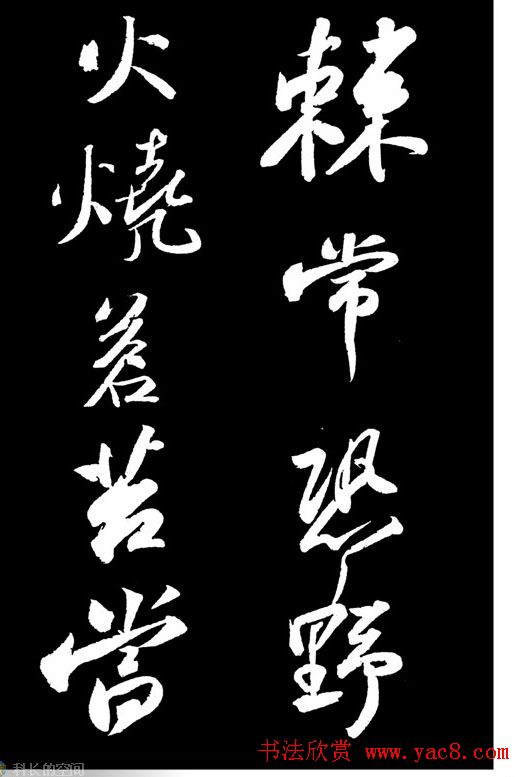 棘常恐野
火燒蒼苔當
书法欣赏 www.yac8.com
科长的空间